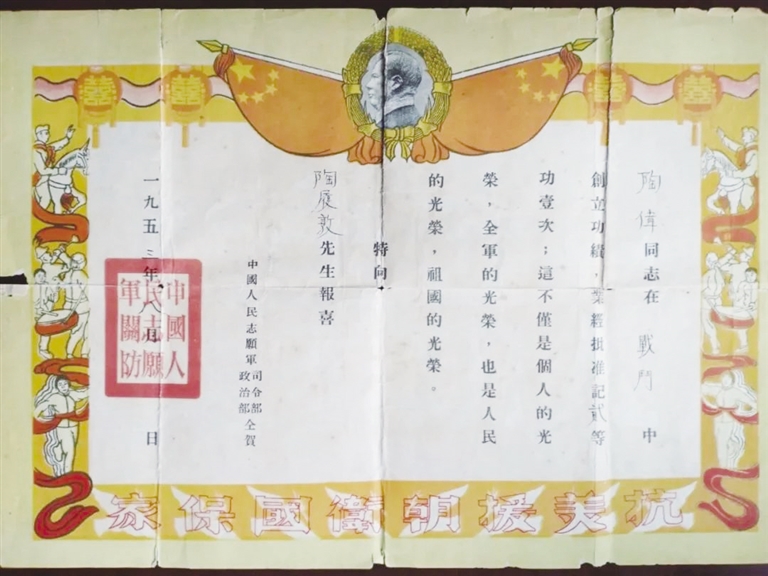 陶偉同志在戰鬥中
創立功績，業經批准記貳等
功壹次；這不僅是個人的光
榮，全軍的光榮，也是人民
的光榮，祖國的光榮。
特向
陶展敦先生報喜
中國人民志願軍司令部政治部仝賀
一九五三年八月 日
中國人民志願軍關防
抗美援朝衛國保家